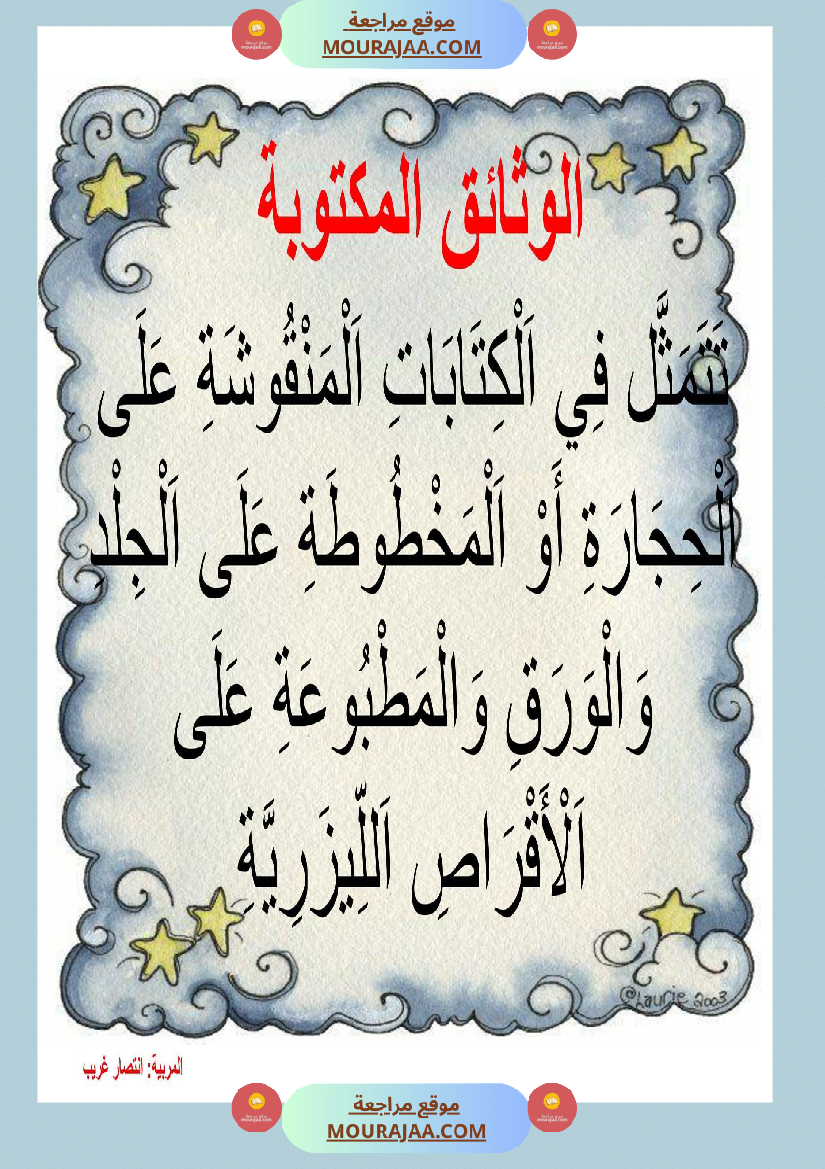 موقع مراجعة
MOURAJAA.COM
الوثائق المكتوبة
تَتَمَثَّل فِي اَلْكِتَابَاتِ اَلْمَنْقُوشَةِ عَلَى
اَلْحِجَارَةِ أَوْ اَلْمَخْطُوطَةِ عَلَى اَلْجِلْدِ
وَالْوَرَقِ وَالْمَطْبُوعَةِ عَلَى
اَلْأَقْرَاصِ اَللِّيزَرِيَّةِ
©Laurie 2003
المربية: انتصار غريب
موقع مراجعة
MOURAJAA.COM